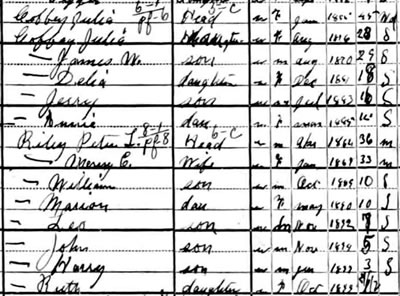 Coffey Julia Head w F Jan
Coffey Julia daughter w F Aug 28 S
— James W. son w m aug 1870 29 S
— Delia daughter w F Dec 1881 18 S
— Jerry son w m Jul 1883 16 S
— Annie dau w F S
Riley Peter L. Head w m Mar 1864 36 m
— Merry E. Wife w F Jan 1867 33 m
— William son w m Oct 1889 10 S
— Marion dau w F may 1890 10 S
— Leo son w m Nov 1892 7 S
— John son w m Nov 1894 5 S
— Harry son w m 3 S
— Ruth daughter w F Oct 1899